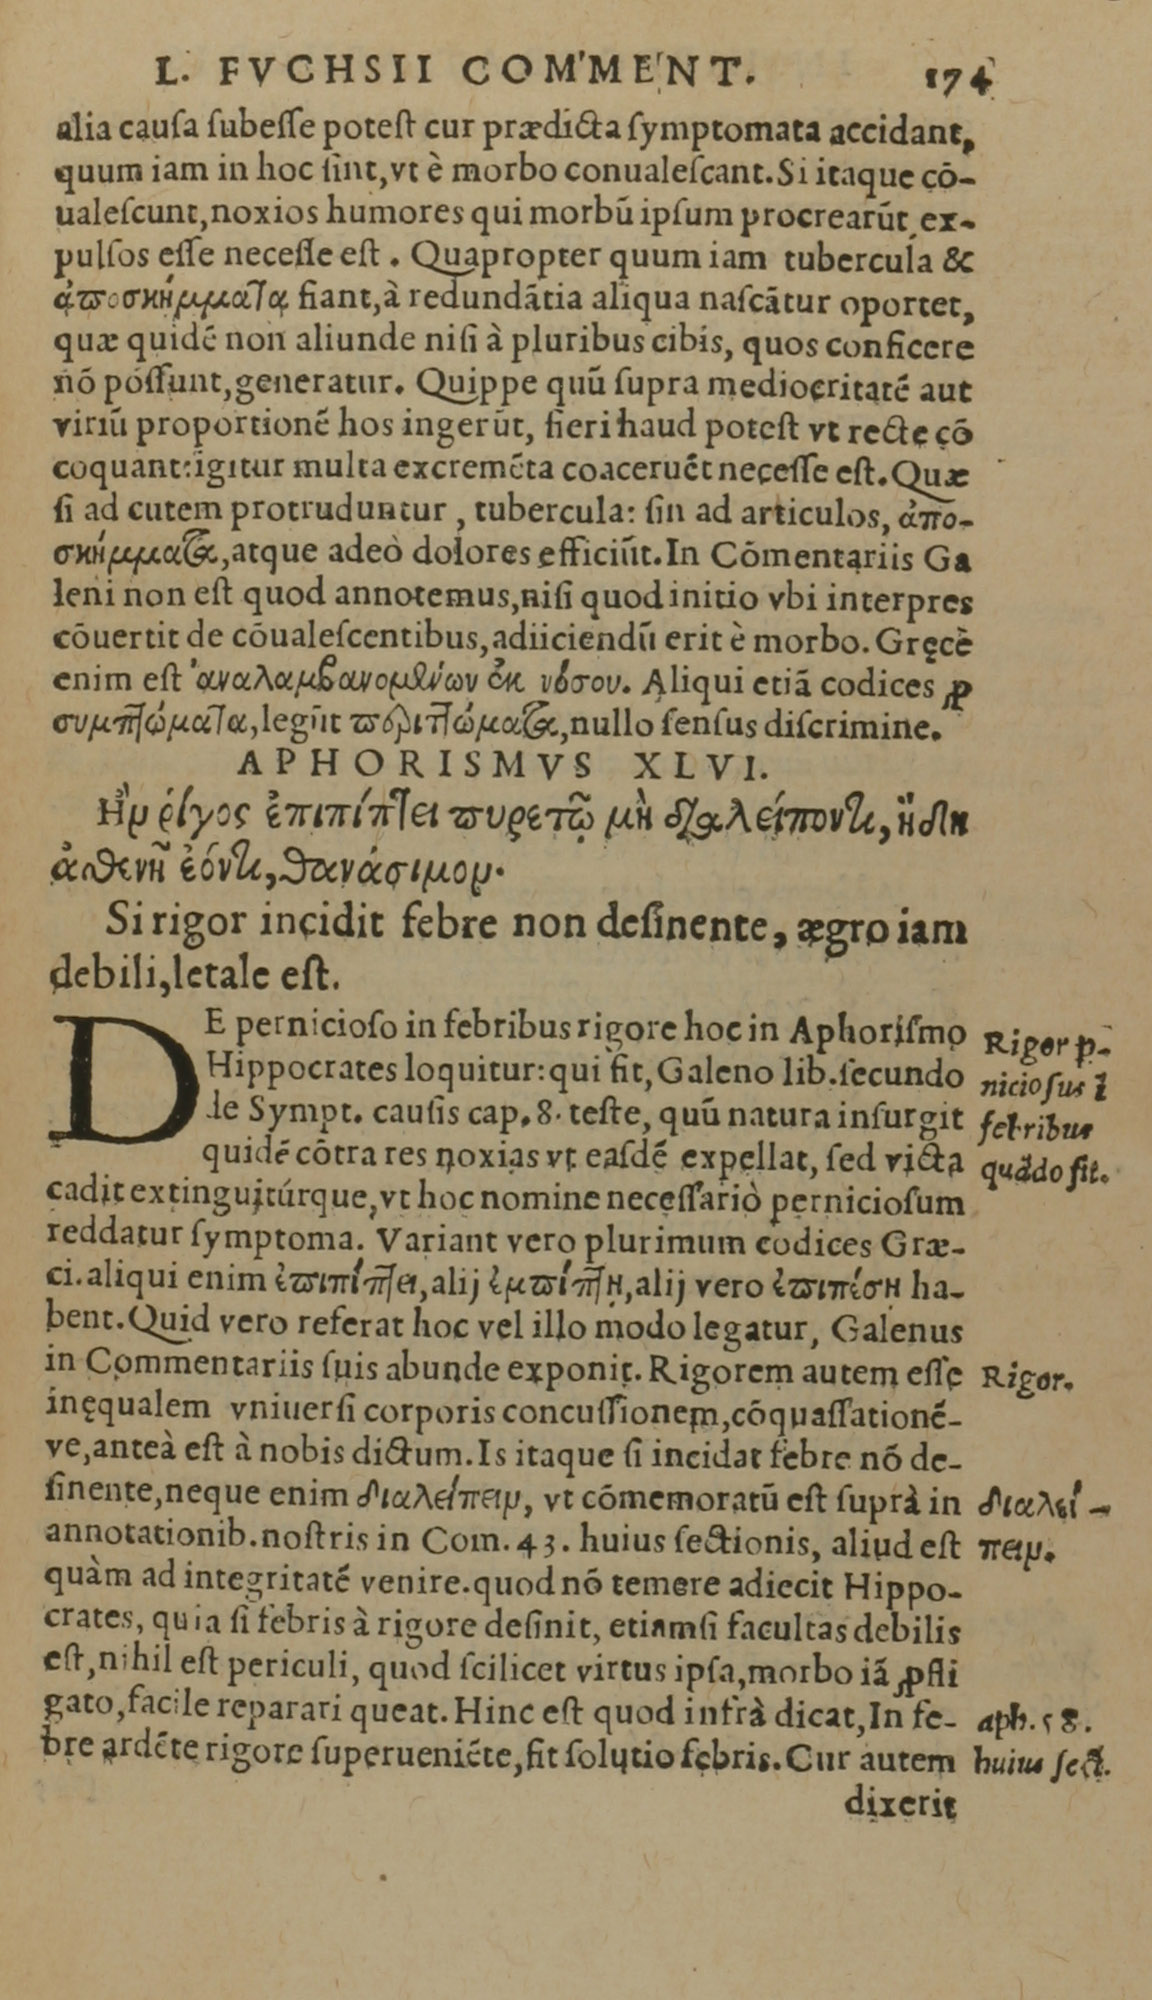 L. FVCHSII COMMENT. 174
alia cauſa ſubeſſe poteſt cur prædicta ſymptomata accidant,
quum iam in hoc ſint, vt è morbo conualeſcant. Si itaque cō-
ualeſcunt, noxios humores qui morbū ipſum procrearūt, ex-
pulſos eſſe neceſſe eſt. Quapropter quum iam tubercula &
ἀποσκήμματα fiant, à redundātia aliqua naſcātur oportet,
quæ quidē non aliunde niſi à pluribus cibis, quos conficere
nō poſſunt, generatur. Quippe quū ſupra mediocritatē aut
viriū proportionē hos ingerūt, fieri haud poteſt vt recte cō
coquant: igitur multa excremēta coaceruēt neceſſe eſt. Quæ
ſi ad cutem protruduntur, tubercula: ſin ad articulos, ἀπο-
σκήμματα, atque adeò dolores efficiūt. In Cōmentariis Ga
leni non eſt quod annotemus, niſi quod initio vbi interpres
cōuertit de cōualeſcentibus, adiiciendū erit è morbo. Gręcè
enim eſt ἀναλαμβανομένων ἐκ νόσου. Aliqui etiā codices ꝓ
συμπτώματα, legūt περιττώματα, nullo ſenſus diſcrimine.
APHORISMVS XLVI.
Ἢν ῥίγος ἐπιπίπτει πυρετῷ μὴ διαλείποντι, ἤδη
ἀσθενῆ ἐόντι, θανάσιμον.
Si rigor incidit febre non deſinente, ægro iam
debili, letale eſt.
DE pernicioſo in febribus rigore hoc in Aphoriſmo
Hippocrates loquitur: qui fit, Galeno lib. ſecundo
de Sympt. cauſis cap. 8. teſte, quū natura inſurgit
quidē cōtra res noxias vt eaſdē expellat, ſed victa
cadit extinguitúrque, vt hoc nomine neceſſariò pernicioſum
reddatur ſymptoma. Variant vero plurimum codices Græ-
ci. aliqui enim ἐπιπίπτει, alij ἐμπίπτῃ, alij vero ἐπιπέσῃ ha-
bent. Quid vero referat hoc vel illo modo legatur, Galenus
in Commentariis ſuis abunde exponit. Rigorem autem eſſe
inęqualem vniuerſi corporis concuſſionem, cōquaſſationē-
ve, anteà eſt à nobis dictum. Is itaque ſi incidat febre nō de-
ſinente, neque enim διαλείπειν, vt cōmemoratū eſt ſuprà in
annotationib. noſtris in Com. 43. huius ſectionis, aliud eſt
quàm ad integritatē venire. quod nō temere adiecit Hippo-
crates, quia ſi febris à rigore deſinit, etiamſi facultas debilis
eſt, nihil eſt periculi, quod ſcilicet virtus ipſa, morbo iā ꝓfli
gato, facile reparari queat. Hinc eſt quod infrà dicat, In fe-
bre ardēte rigore ſuperueniēte, fit ſolutio febris. Cur autem
dixerit
Rigor p-
nicioſus ī
febribus
quādo fit.
Rigor.
διαλεί-
πειν.
aph. 58.
huius ſect.